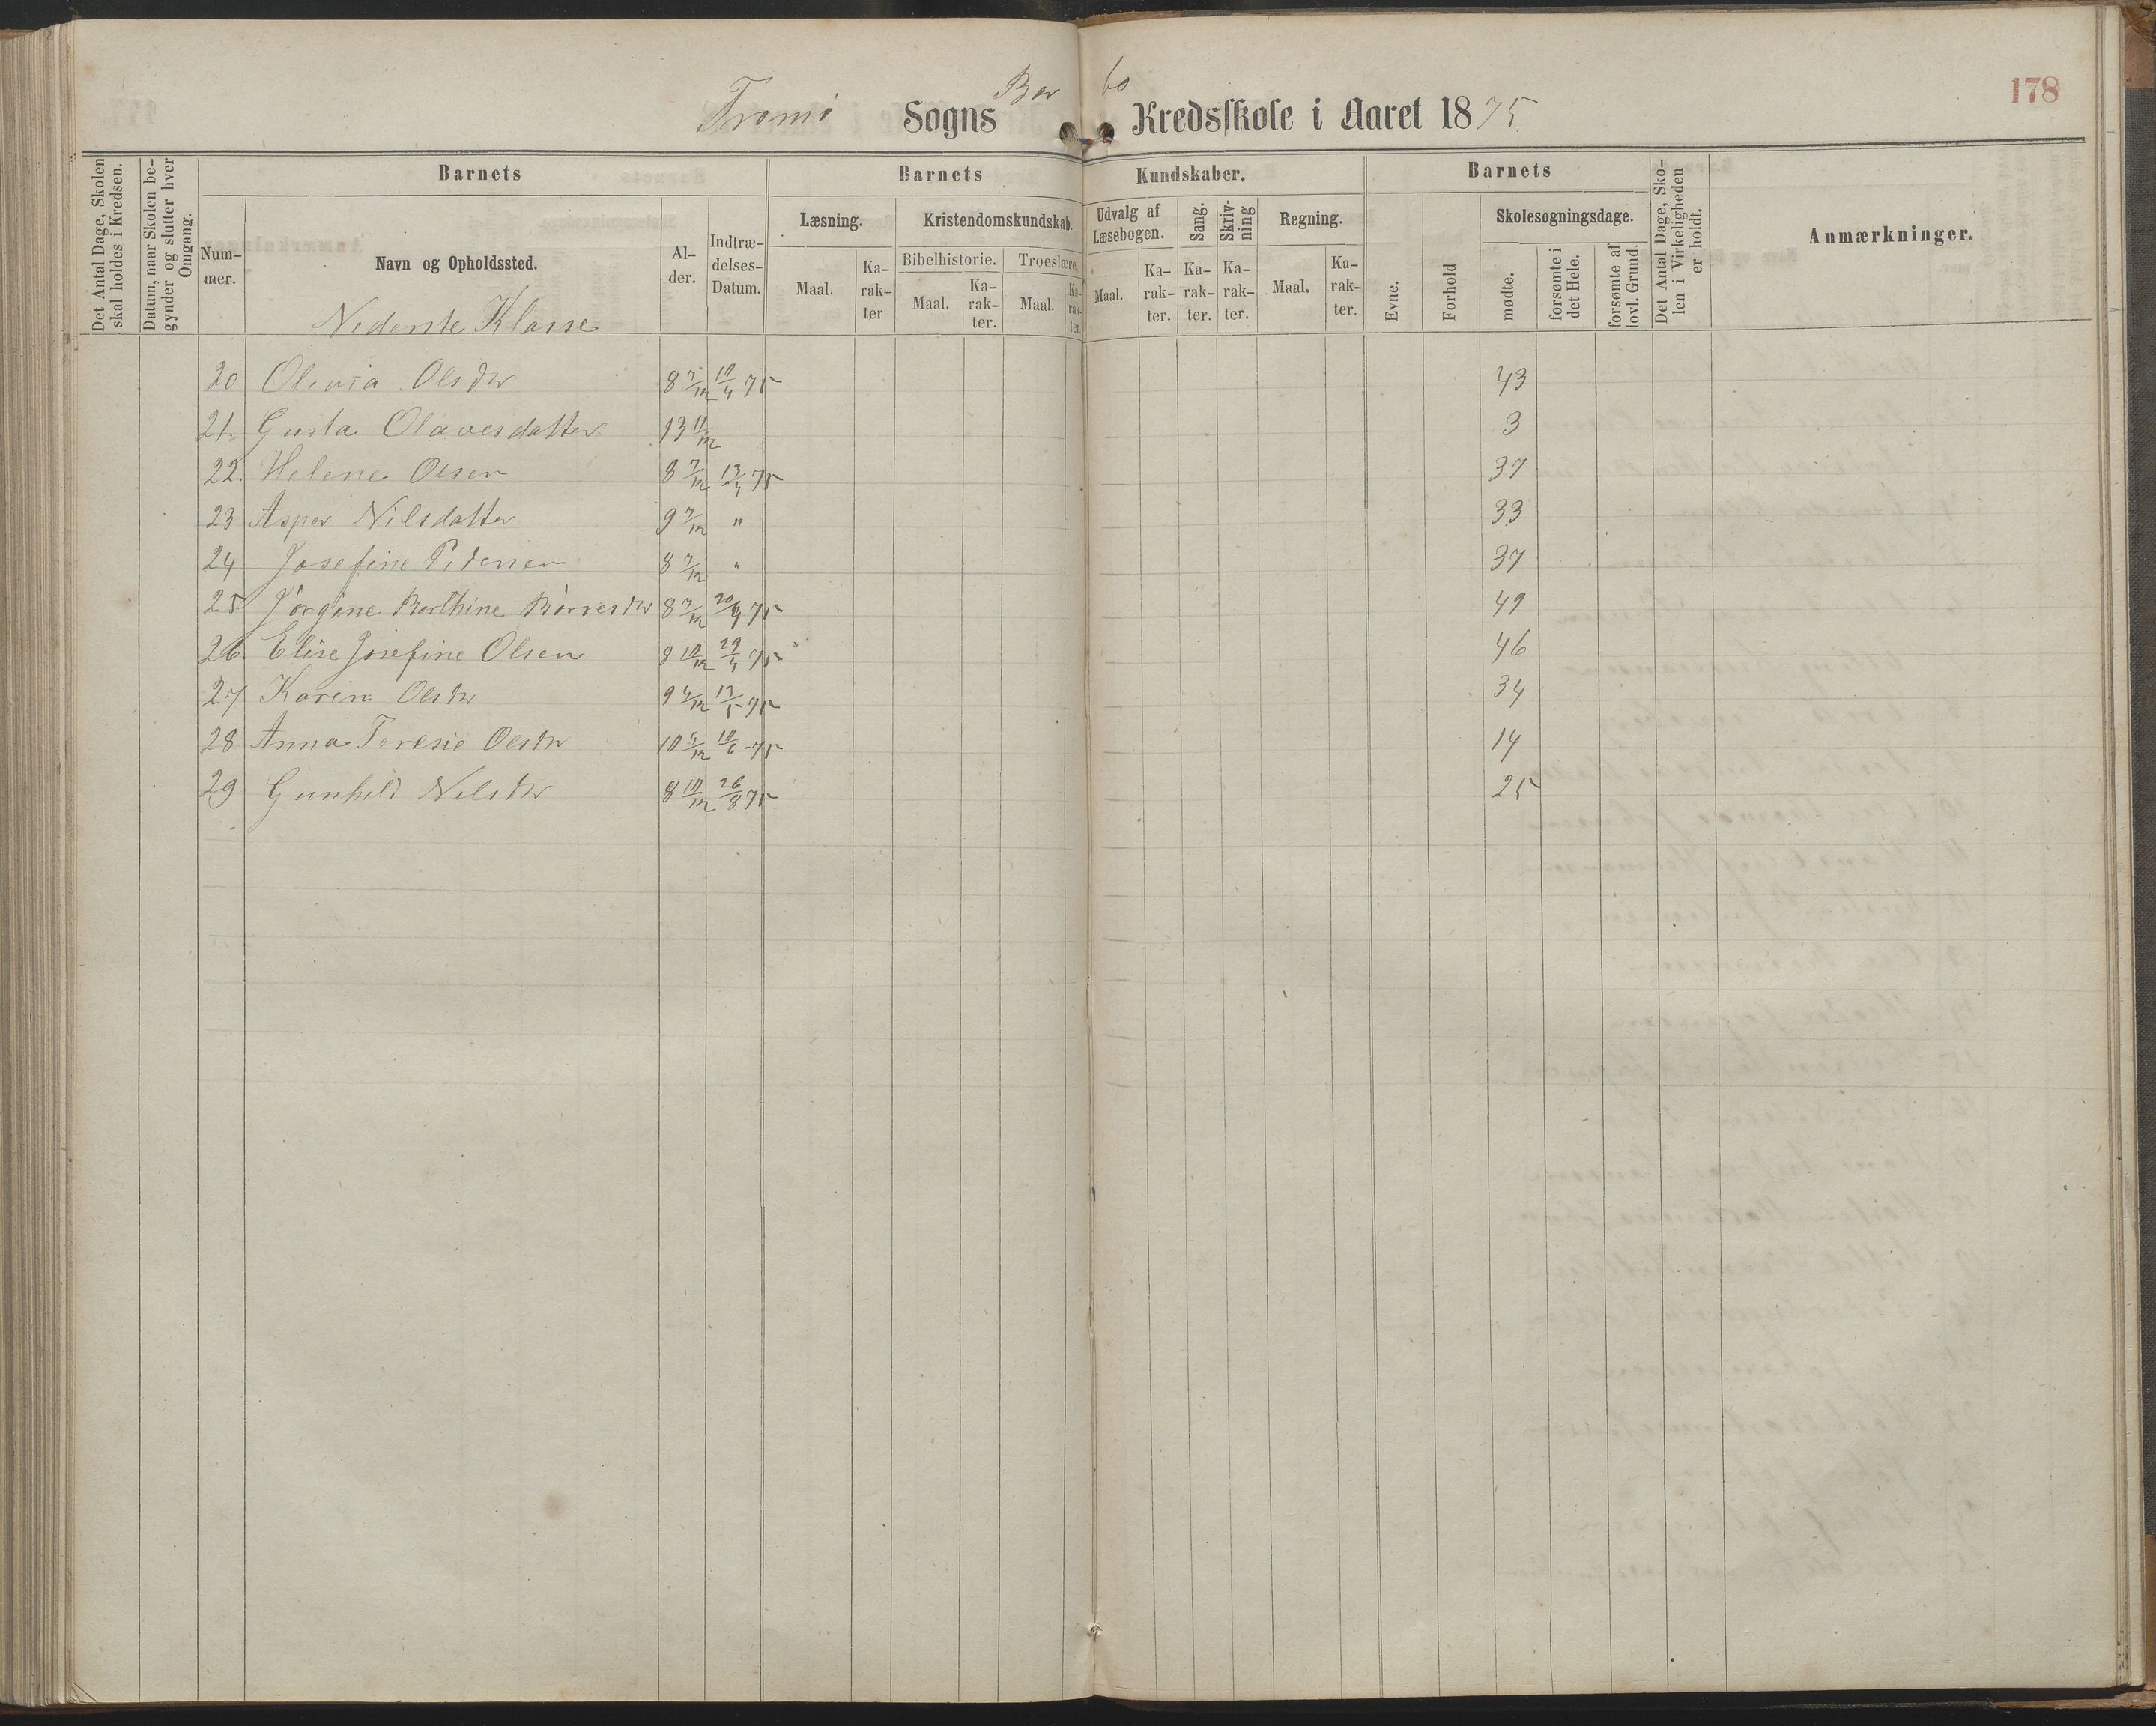 178
Tromø Sogns Barbo Kredsskole i Aaret 1875
Det Antal Dage, Skolen skal holdes i Kredsen.
Datum, naar Skolen begynder og slutter hver Omgang.
Barnets
Nummer.
Navn og Opholdssted.
Alder.
Indtrædelses-Datum.
Barnets Kundskaber.
Læsning.
Maal.
Karakter
Kristendomskundskab.
Bibelhistorie.
Maal.
Karakter.
Troeslære.
Maal.
Karakter.
Udvalg af Læsebogen.
Maal.
Karakter.
Sang.
Karakter.
Skrivning
Karakter.
Regning.
Maal.
Karakter.
Barnets
Evne.
Forhold
Skolesøgningsdage.
mødte.
forsømte i det Hele.
forsømte af lovl. Grund.
Det Antal Dage, Skolen i Virkeligheden er holdt.
Anmærkninger.
Nederste Klasse
20 Olevia Olsdtr 8 7/12 12/4 75 43
21. Gusta Olavesdatter 13 11/12 3
22. Helene Olsen 8 7/12 13/4 75 37
23 Asper Nilsdatter 9 7/12 " 33
24 Josefine Pedersen 8 7/12 " 37
25 Jørgine Berthine Børresdtr 8 7/12 20/4 75 49
26. Elise Josefine Olsen 8 10/12 29/4 75 46
27 Karen Olsdtr 9 4/12 13/5 75 34
28 Anna Teresie Olsdtr 10 5/12 10/6 75 14
29 Gunhild Nelsdtr 8 10/12 26/8 75 25